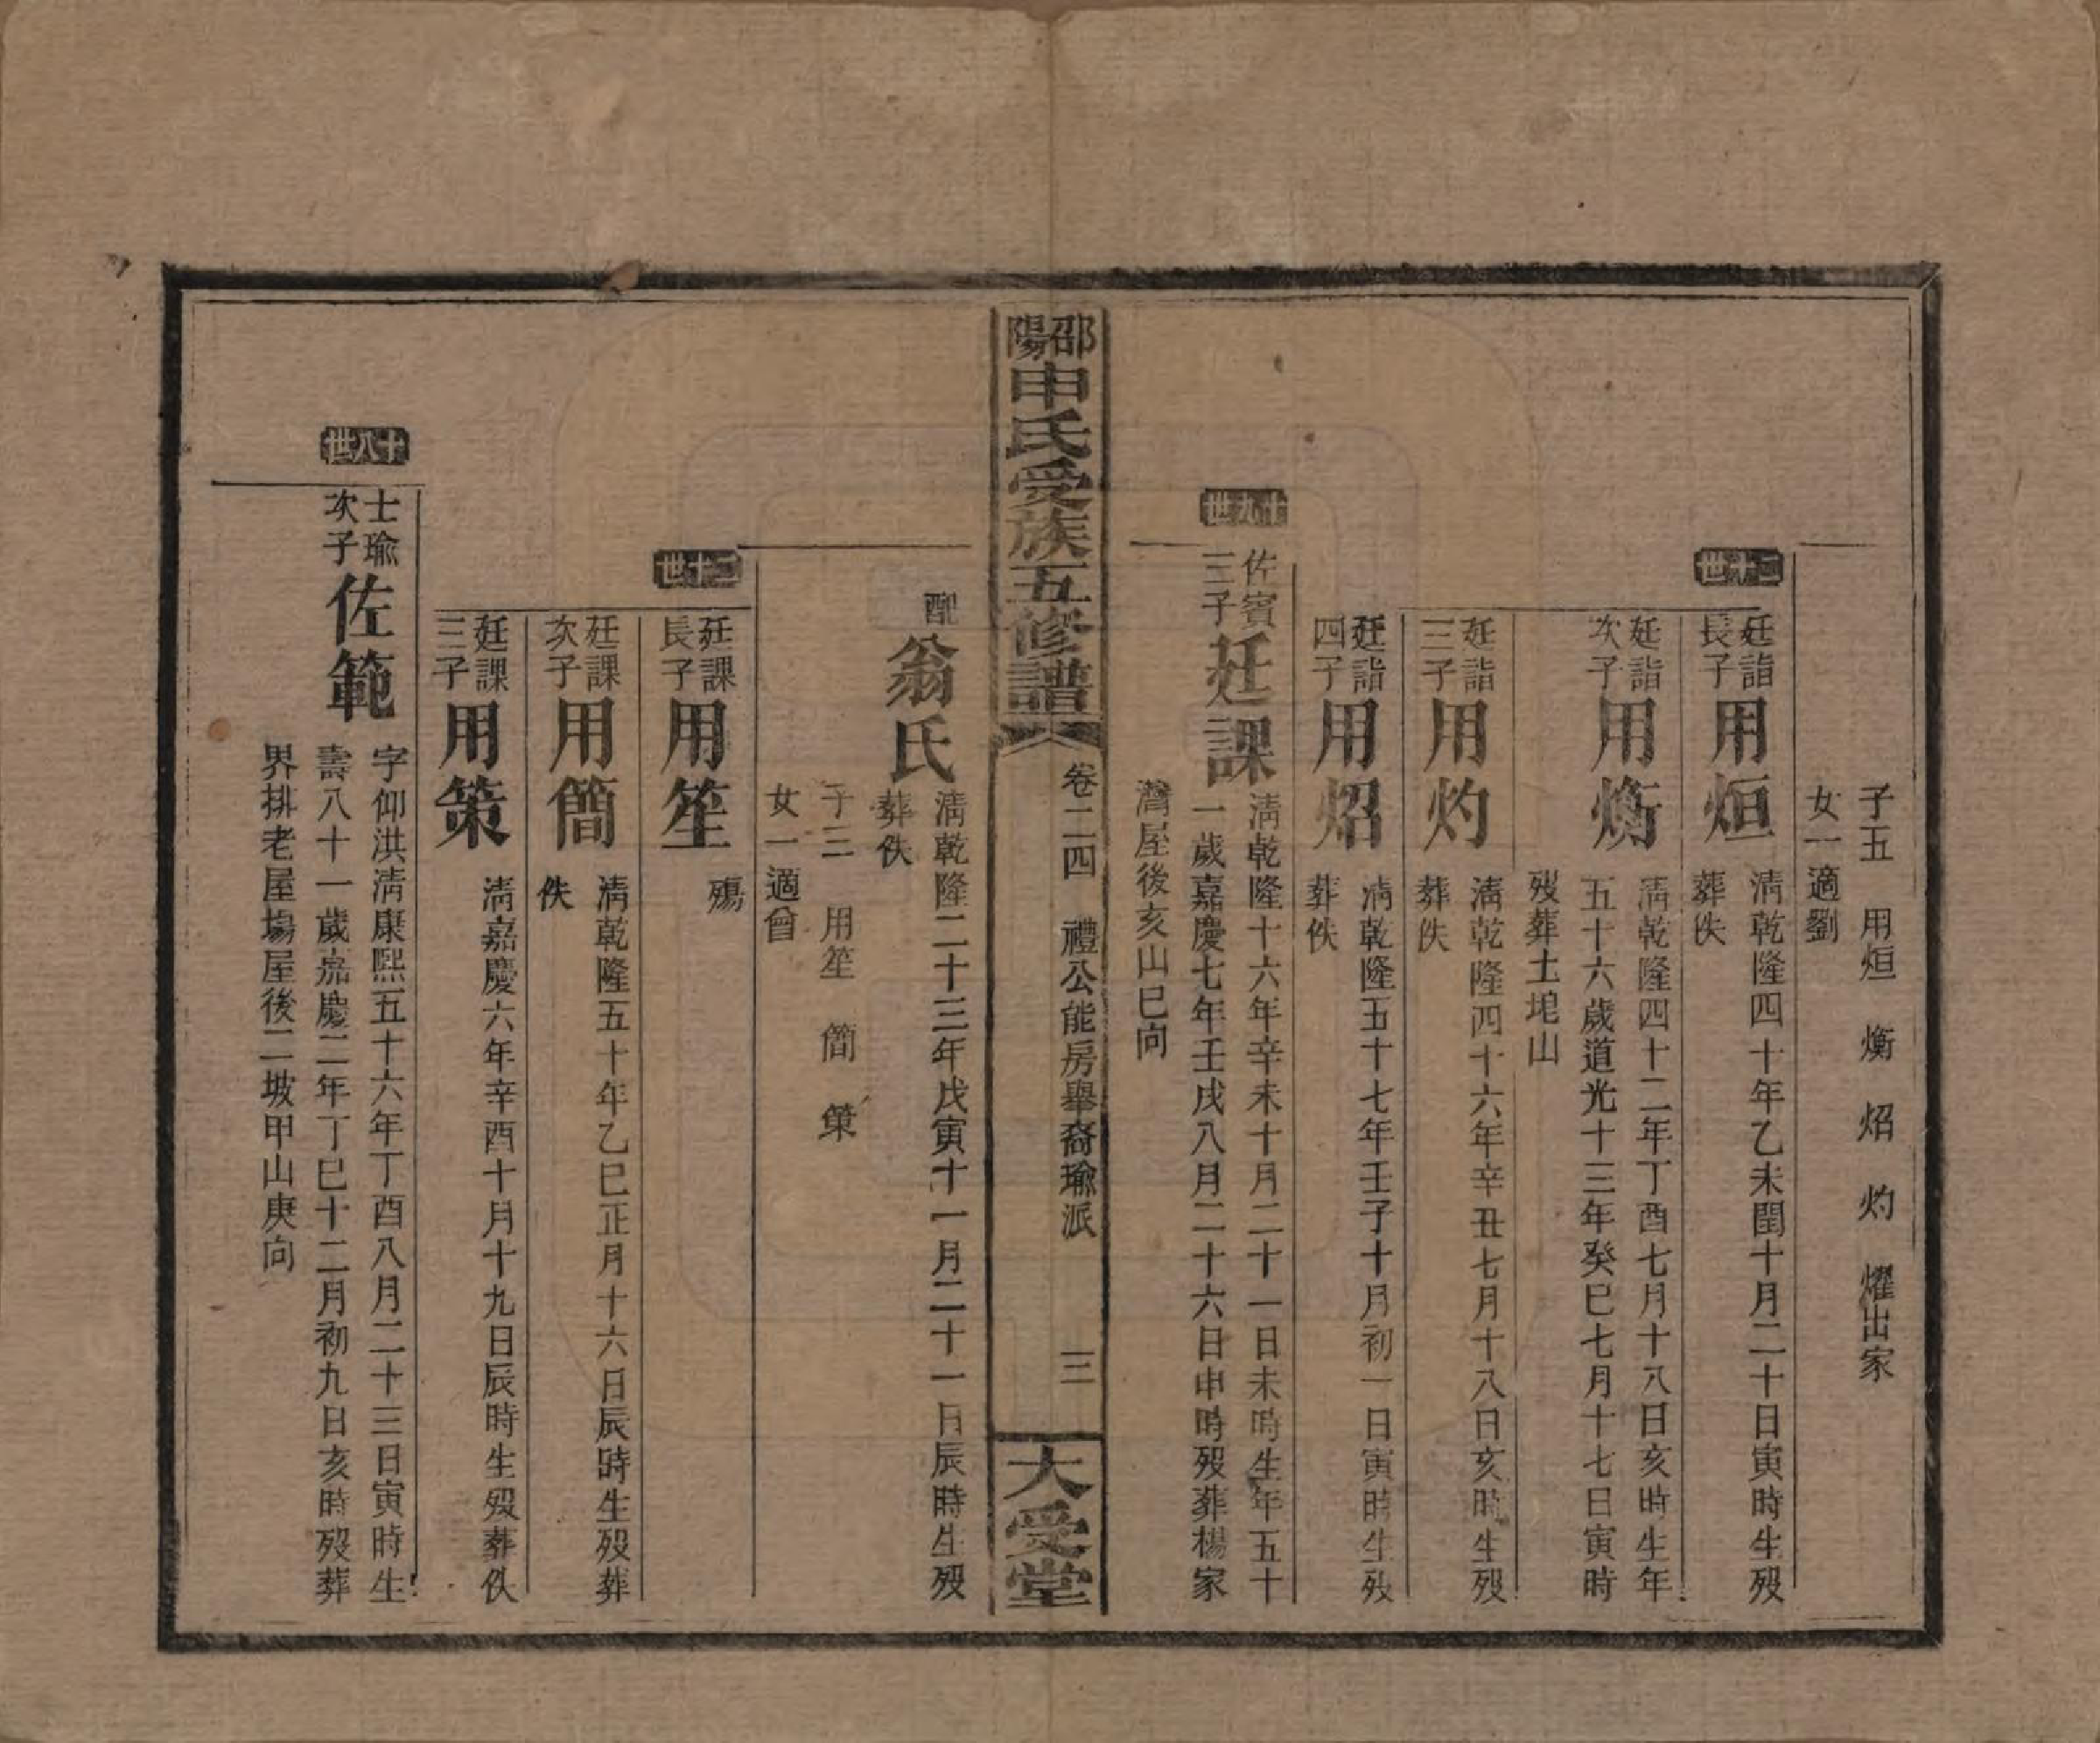 子五　用烜　㷹　炤　灼　燿出家
女一適劉
二十世
廷詣長子用烜
清乾隆四十年乙未閏十月二十日寅時生歿
葬佚
廷詣次子用㷹
清乾隆四十二年丁酉七月十八日亥時生年
五十六歲道光十三年癸巳七月十七日寅時
歿葬土坨山
廷詣三子用灼
清乾隆四十六年辛丑七月十八日亥時生歿
葬佚
廷詣四子用炤
清乾隆五十七年壬子十月初一日寅時生歿
葬佚
十九世
佐賓三子廷課
清乾隆十六年辛未十月二十一日未時生年五十
一歲嘉慶七年壬戌八月二十六日申時歿葬楊家
灣屋後亥山巳向
邵陽申氏受族五修譜
卷二四　禮公能房舉裔瑜派　三
大受堂
配翁氏
清乾隆二十三年戊寅十一月二十一日辰時生歿
葬佚
子三　用笙　簡　策
女一適曾
二十世
廷課長子用笙
殤
廷課次子用簡
清乾隆五十年乙巳正月十六日辰時生歿葬
佚
廷課三子用策
清嘉慶六年辛酉十月十九日辰時生歿葬佚
十八世
士瑜次子佐範
字仰洪清康熙五十六年丁酉八月二十三日寅時生
壽八十一歲嘉慶二年丁巳十二月初九日亥時歿葬
界排老屋塲屋後二坡甲山庚向